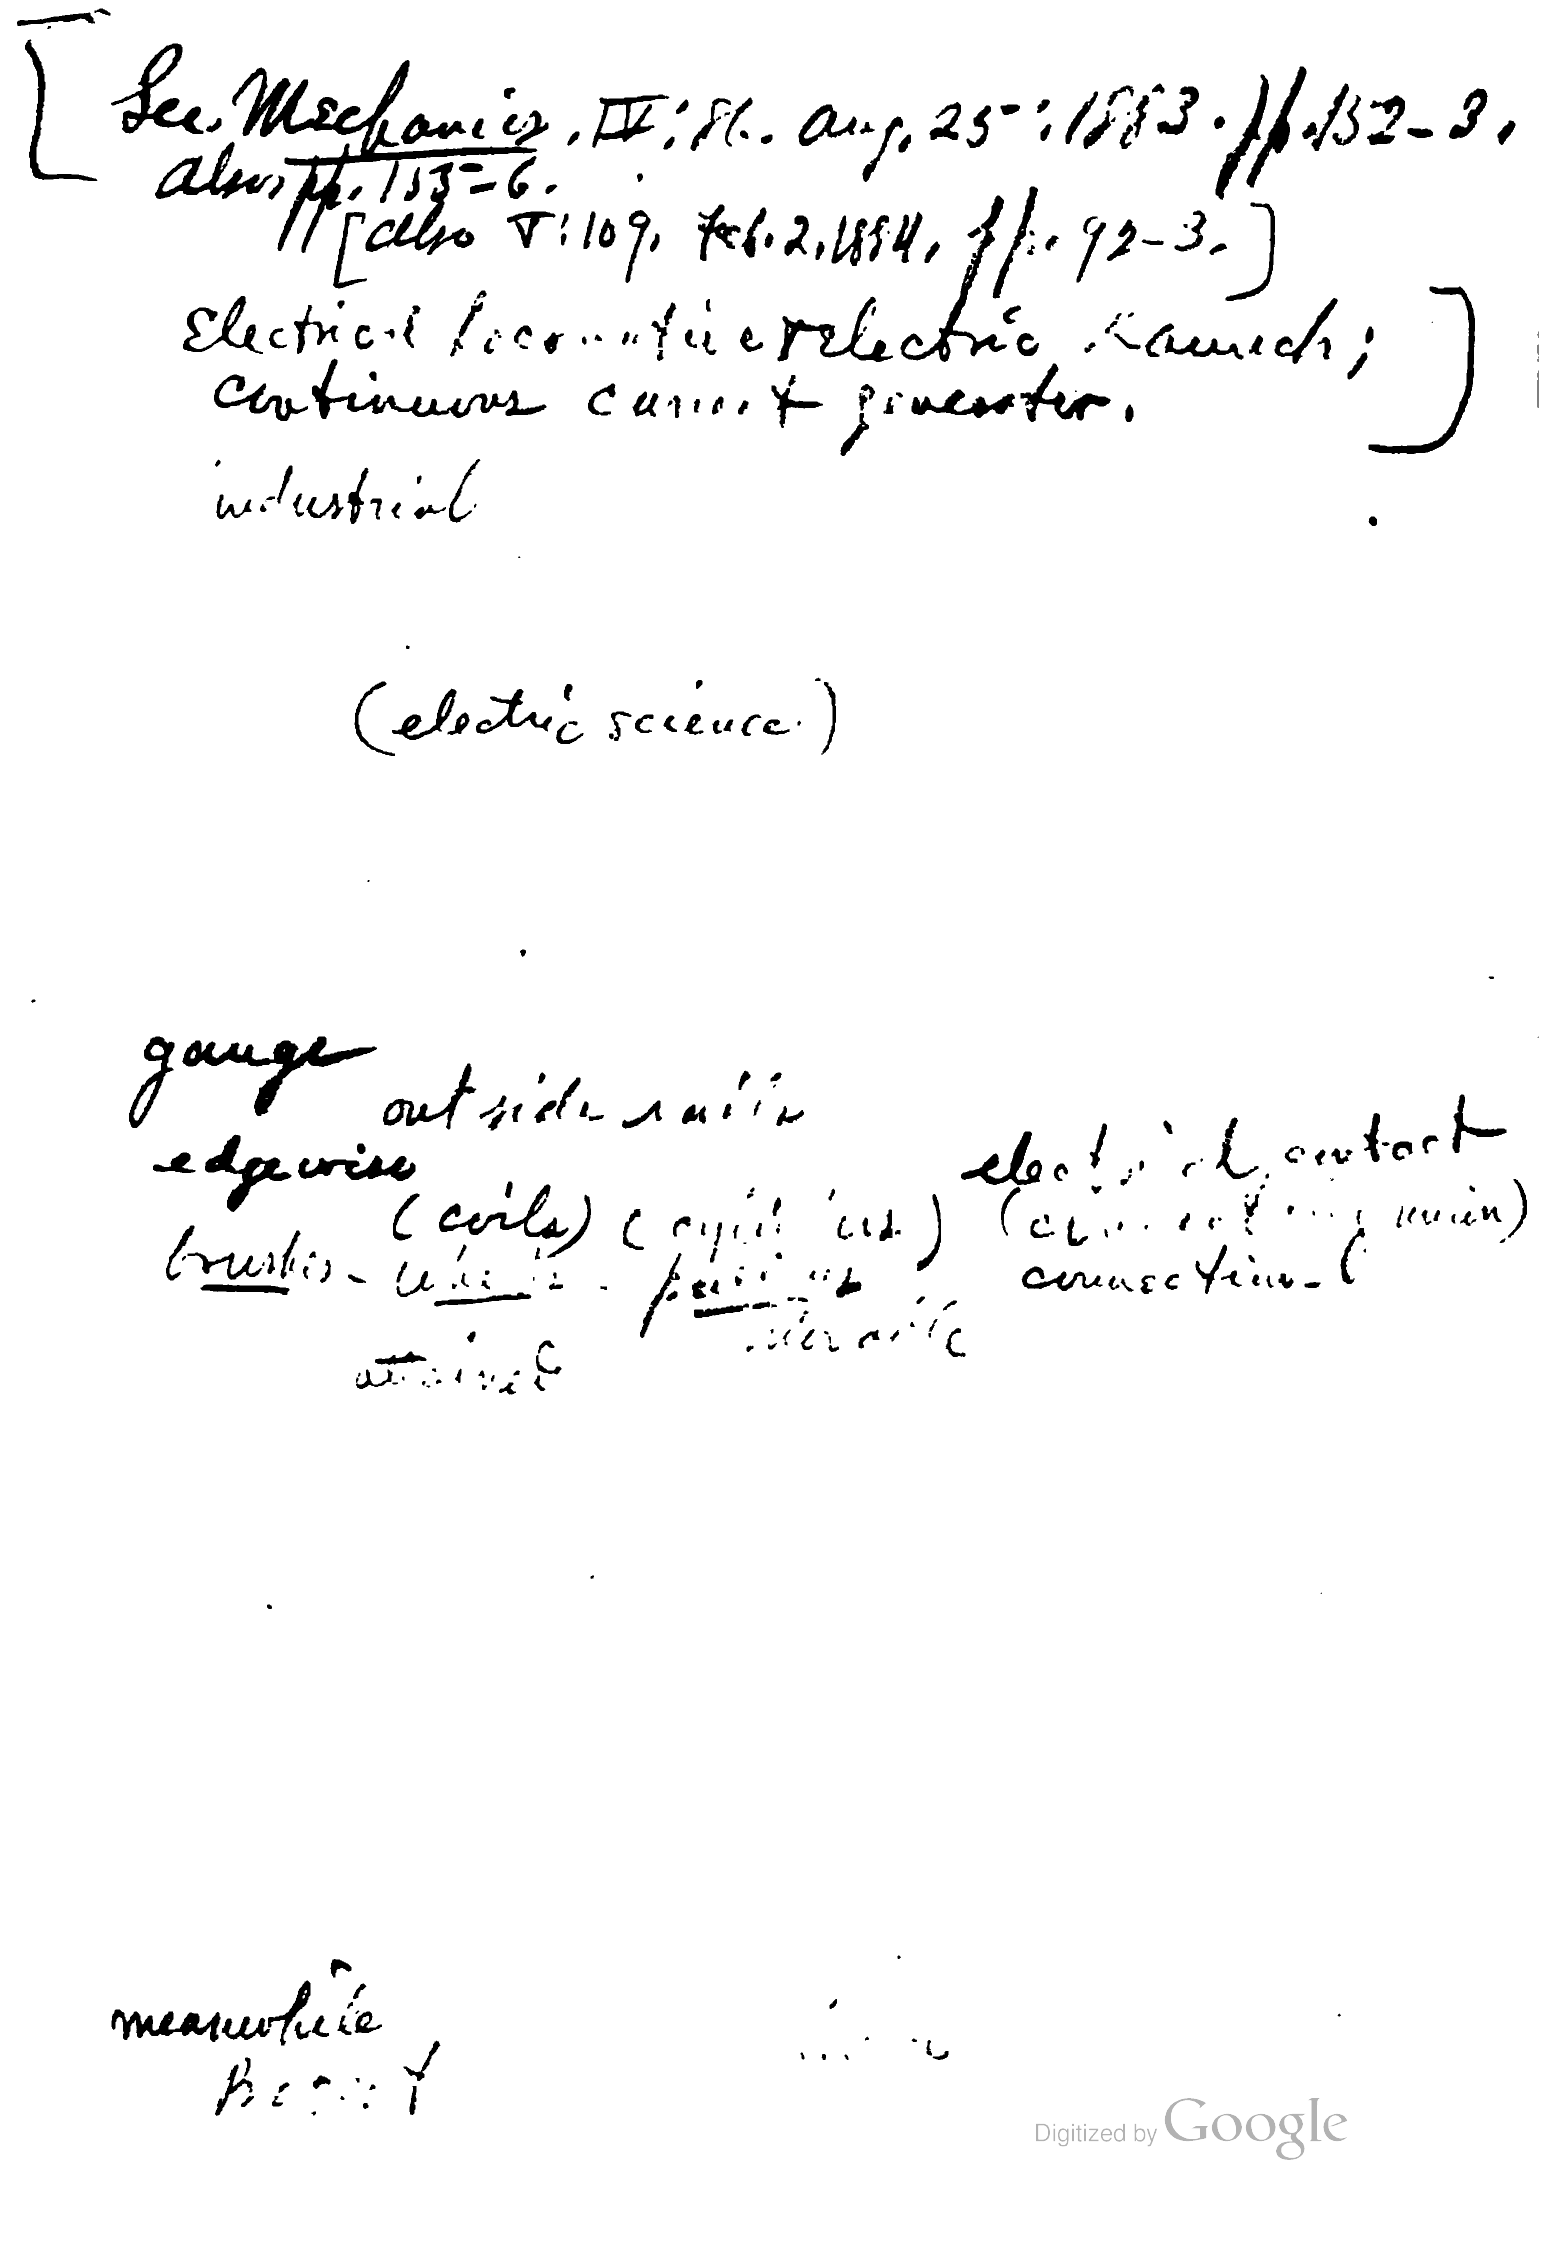 [See. Mechanics. IV: 86. Aug. 25: 1883. pp. 152-3.
also, pp. 155-6.
[also V: 109. Feb. 2, 1884, pp. 92-3.]
Electrical locomotive & electric launch;
continuous current generator.]
industrial
(electric science.)
gauge
outside rails
edgewise
electrical contact
(coils)
brushes - 
connection
attained
meanwhile
Digitized by Google